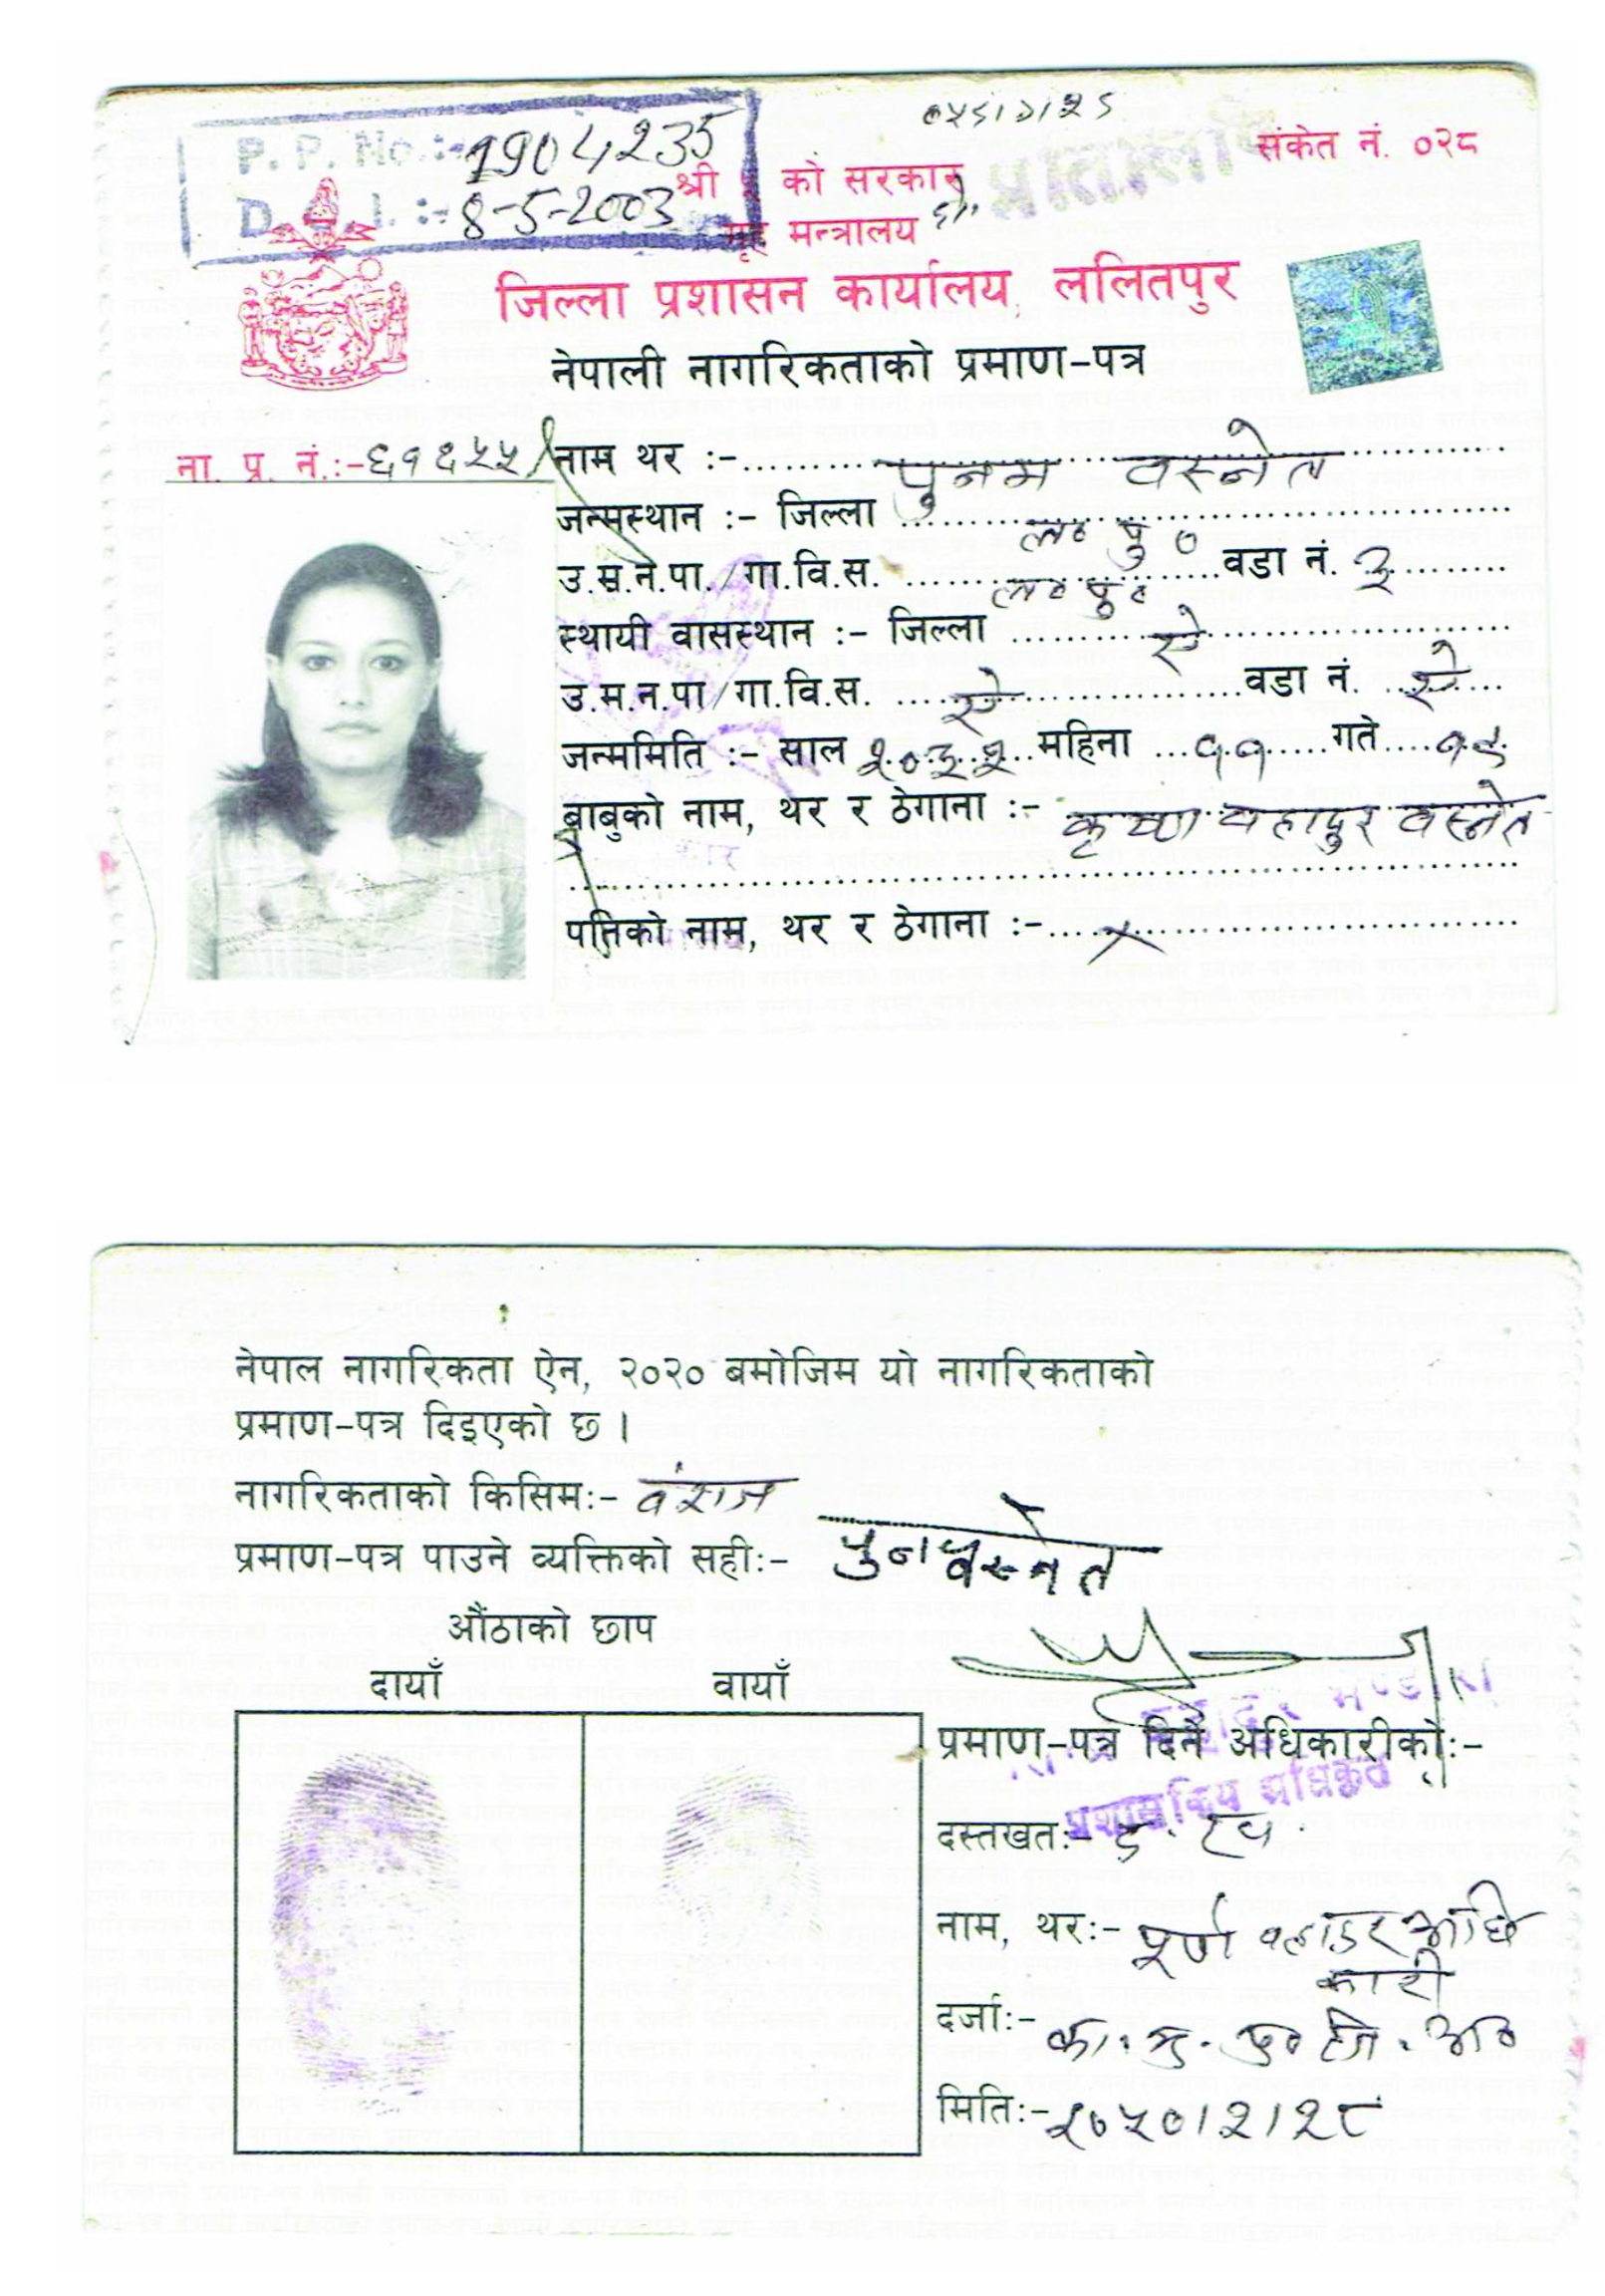 ०५९।१।२९
P. P. No.:- 1904235 संकेत नं. ०२८
D. I.:- 8-5-2003
श्री ५ को सरकार
गृह मन्त्रालय
प्रतिलिपि
जिल्ला प्रशासन कार्यालय, ललितपुर
नेपाली नागरिकताको प्रमाण-पत्र
ना. प्र. नं.:- ६१६५५ नाम थर :- पुनम वस्नेत
जन्मस्थान :- जिल्ला ल० पु०
उ.म.न.पा./गा.वि.स. ल० पु० वडा नं. ३
स्थायी वासस्थान :- जिल्ला ऐ
उ.म.न.पा/गा.वि.स. ऐ वडा नं. ऐ
जन्ममिति :- साल २०३२ महिना ११ गते १९
बाबुको नाम, थर र ठेगाना :- कृष्ण वहादुर वस्नेत
पतिको नाम, थर र ठेगाना :- ×
नेपाल नागरिकता ऐन, २०२० बमोजिम यो नागरिकताको
प्रमाण-पत्र दिइएको छ ।
नागरिकताको किसिम:- वंशज
प्रमाण-पत्र पाउने व्यक्तिको सही:- पुनम वस्नेत
औंठाको छाप
दायाँ वायाँ
प्रमाण-पत्र दिने अधिकारीको:-
प्रशासकिय अधिकृत
दस्तखत:-
नाम, थर:- पूर्ण वहादुर अधि
कारी
दर्जा:- का. मु. प्र० जि. अ०
मिति:- २०५०।२।२८